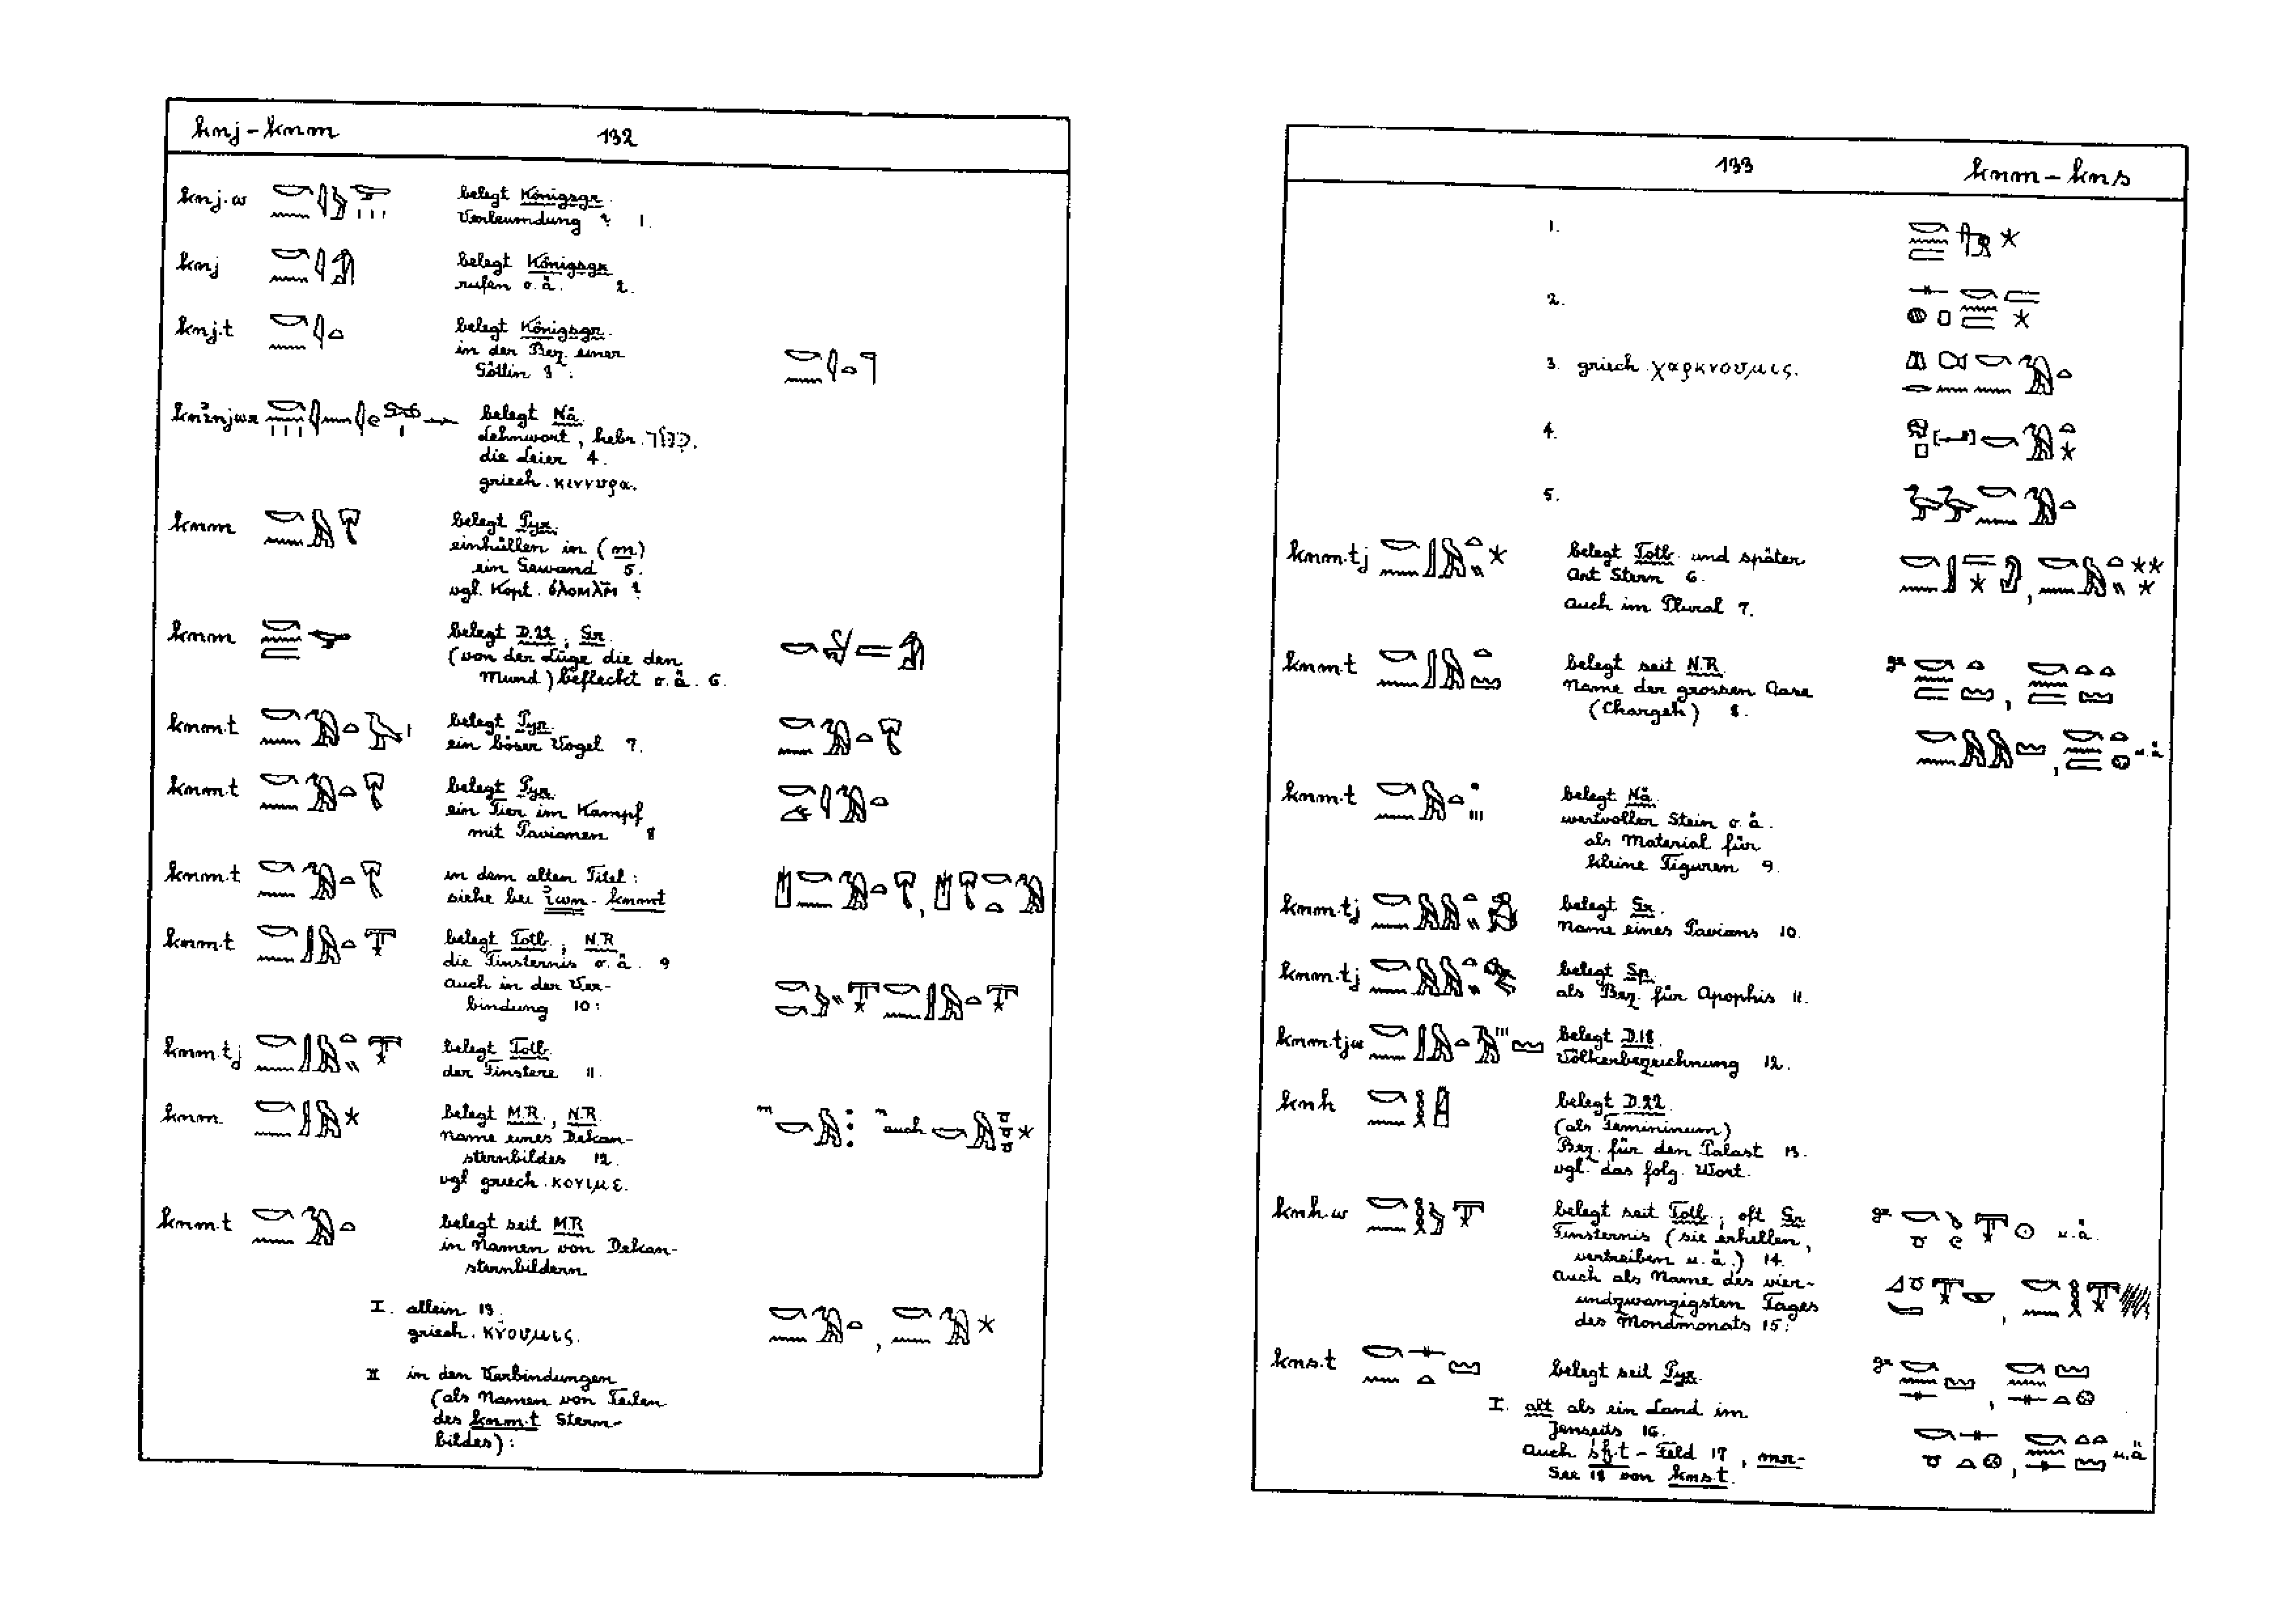 knj – knm 132
knj.w belegt Königsgr.
Verleumdung ? 1.
knj belegt Königsgr.
rufen o. ä. 2.
knj.t belegt Königsgr.
in der Bez. einer
Göttin 3 :
belegt Nä.
Lehnwort, hebr. כִּנּוֹר.
die Leier 4.
griech. κιννυρα.
knm belegt Pyr.
einhüllen in (m)
ein Gewand 5.
vgl. Kopt. ϭⲗⲟⲙⲗⲙ̄ ?
knm belegt D.22, Gr.
(von der Lüge die den
Mund) befleckt o. ä. 6.
knm.t belegt Pyr.
ein böser Vogel 7.
knm.t belegt Pyr.
ein Tier im Kampf
mit Pavianen 8
knm.t in dem alten Titel :
siehe bei ỉwn - knmt
knm.t belegt Totb., N.R.
die Finsternis o. ä. 9
auch in der Ver-
bindung 10 :
knm.tj belegt Totb.
der Finstere 11.
knm. belegt M.R., N.R.
Name eines Dekan-
sternbildes 12.
vgl griech. κονιμε.
m " auch
knm.t belegt seit M.R.
in Namen von Dekan-
sternbildern
I. allein 13.
griech. κνουμις.
II in den Verbindungen
(als Namen von Teilen
des knm.t Stern-
bildes) :
133 knm – kns
1.
2.
3. griech. χαρκνουμις.
4.
5.
knm.tj belegt Totb. und später
Art Stern 6.
auch im Plural 7.
knm.t belegt seit N.R. gr
Name der grossen Oase
(Chargeh) 8.
u. ä
knm.t belegt Nä.
wertvoller Stein o. ä.
als Material für
kleine Figuren 9.
knm.tj belegt Gr.
Name eines Pavians 10.
knm.tj belegt Sp.
als Bez. für Apophis 11.
knm.tjw belegt D.18.
Völkerbezeichnung 12.
knh belegt D.22.
(als Femininum)
Bez. für den Palast 13.
vgl. das folg. Wort.
knh.w belegt seit Totb., oft Gr gr u. ä.
Finsternis (sie erhellen,
vertreiben u. ä.) 14.
auch als Name des vier-
undzwanzigsten Tages
des Mondmonats 15 :
kns.t belegt seit Pyr. gr
I. alt als ein Land im
Jenseits 16.
Auch – Feld 17, mr-
See 18 von kns.t. u. ä